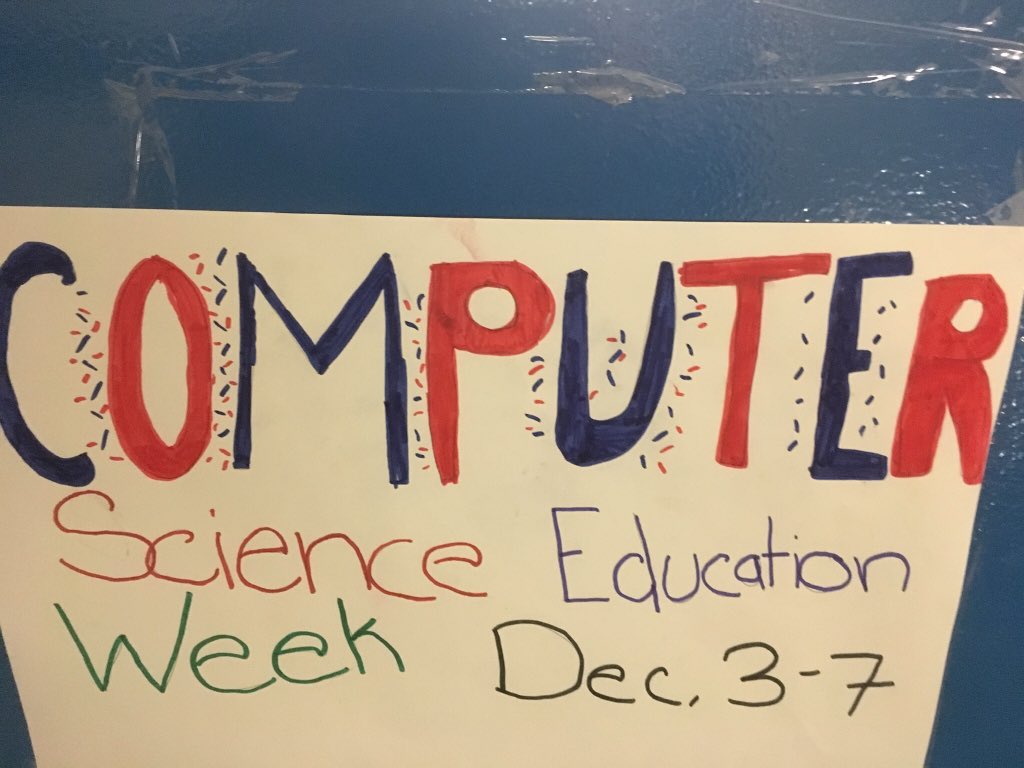 COMPUTER
Science Education
Week Dec. 3-7